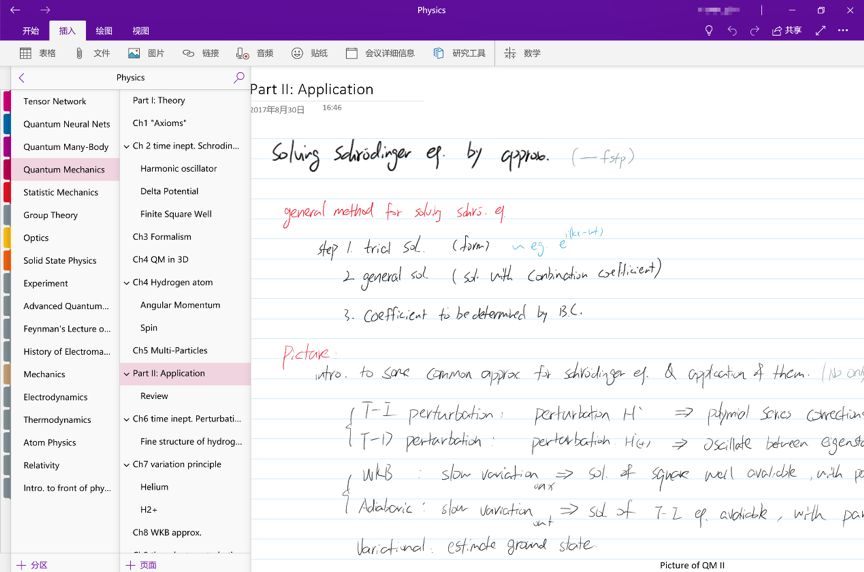 Physics
开始 插入 绘图 视图
共享
表格 文件 图片 链接 音频 贴纸 会议详细信息 研究工具 数学
Physics
Tensor Network
Quantum Neural Nets
Quantum Many-Body
Quantum Mechanics
Statistic Mechanics
Group Theory
Optics
Solid State Physics
Experiment
Advanced Quantum...
Feynman's Lecture o...
History of Electroma...
Mechanics
Electrodynamics
Thermodynamics
Atom Physics
Relativity
Intro. to front of phy...
分区
Part I: Theory
Ch1 "Axioms"
Ch 2 time inept. Schrodin...
Harmonic oscillator
Delta Potential
Finite Square Well
Ch3 Formalism
Ch4 QM in 3D
Ch4 Hydrogen atom
Angular Momentum
Spin
Ch5 Multi-Particles
Part II: Application
Review
Ch6 time inept. Perturbati...
Fine structure of hydrog...
Ch7 variation principle
Helium
H2+
Ch8 WKB approx.
页面
Part II: Application
2017年8月30日 16:46
Solving Schrödinger eq. by approx. (— fstp)
general method for solving schrö. eq.
step 1. trial sol. (form) ~ eg. e^i(kx-wt)
2. general sol. (sol. with combination coefficient)
3. coefficient to be determined by B.C.
Picture:
intro. to some common approx for schrödinger eq. & application of them. (No only
T-I perturbation: perturbation H' ⇒ polymal series correction
T-D perturbation: perturbation H(t) ⇒ oscillate between eigenst
WKB : slow variation on x ⇒ sol. of square well avaliable, with pa
Adabavic: slow variation on t ⇒ sol of T-I eq. avaliable, with par
Variational: estimate ground state
Picture of QM II